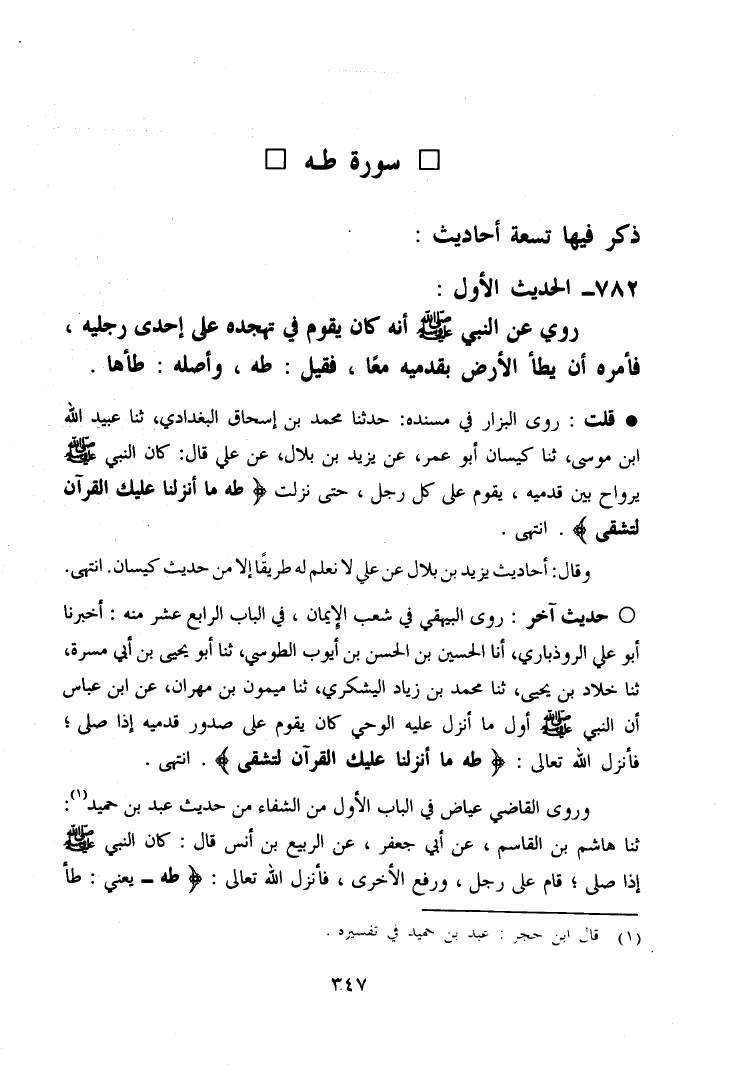 □ سورة طـه □
ذكر فيها تسعة أحاديث :
٧٨٢ـ الحديث الأول :
روي عن النبي ﷺ أنه كان يقوم في تهجده على إحدى رجليه ،
فأمره أن يطأ الأرض بقدميه معًا ، فقيل : طه ، وأصله : طأها .
● قلت : روى البزار في مسنده: حدثنا محمد بن إسحاق البغدادي، ثنا عبيد الله
ابن موسى، ثنا كيسان أبو عمر، عن يزيد بن بلال، عن علي قال: كان النبي ﷺ
يرواح بين قدميه ، يقوم على كل رجل ، حتى نزلت ﴿ طه ما أنزلنا عليك القرآن
لتشقى ﴾ . انتهى .
وقال: أحاديث يزيد بن بلال عن علي لا نعلم له طريقًا إلا من حديث كيسان. انتهى.
○ حديث آخر : روى البيهقي في شعب الإيمان ، في الباب الرابع عشر منه : أخبرنا
أبو علي الروذباري، أنا الحسين بن الحسن بن أيوب الطوسي، ثنا أبو يحيى بن أبي مسرة،
ثنا خلاد بن يحيى، ثنا محمد بن زياد اليشكري، ثنا ميمون بن مهران، عن ابن عباس
أن النبي ﷺ أول ما أنزل عليه الوحي كان يقوم على صدور قدميه إذا صلى ؛
فأنزل الله تعالى : ﴿ طه ما أنزلنا عليك القرآن لتشقى ﴾ . انتهى .
وروى القاضي عياض في الباب الأول من الشفاء من حديث عبد بن حميد(١):
ثنا هاشم بن القاسم ، عن أبي جعفر ، عن الربيع بن أنس قال : كان النبي ﷺ
إذا صلى ؛ قام على رجل ، ورفع الأخرى ، فأنزل الله تعالى : ﴿ طه ـ يعني : طأ
(١) قال ابن حجر : عبد بن حميد في تفسيره .
٣٤٧